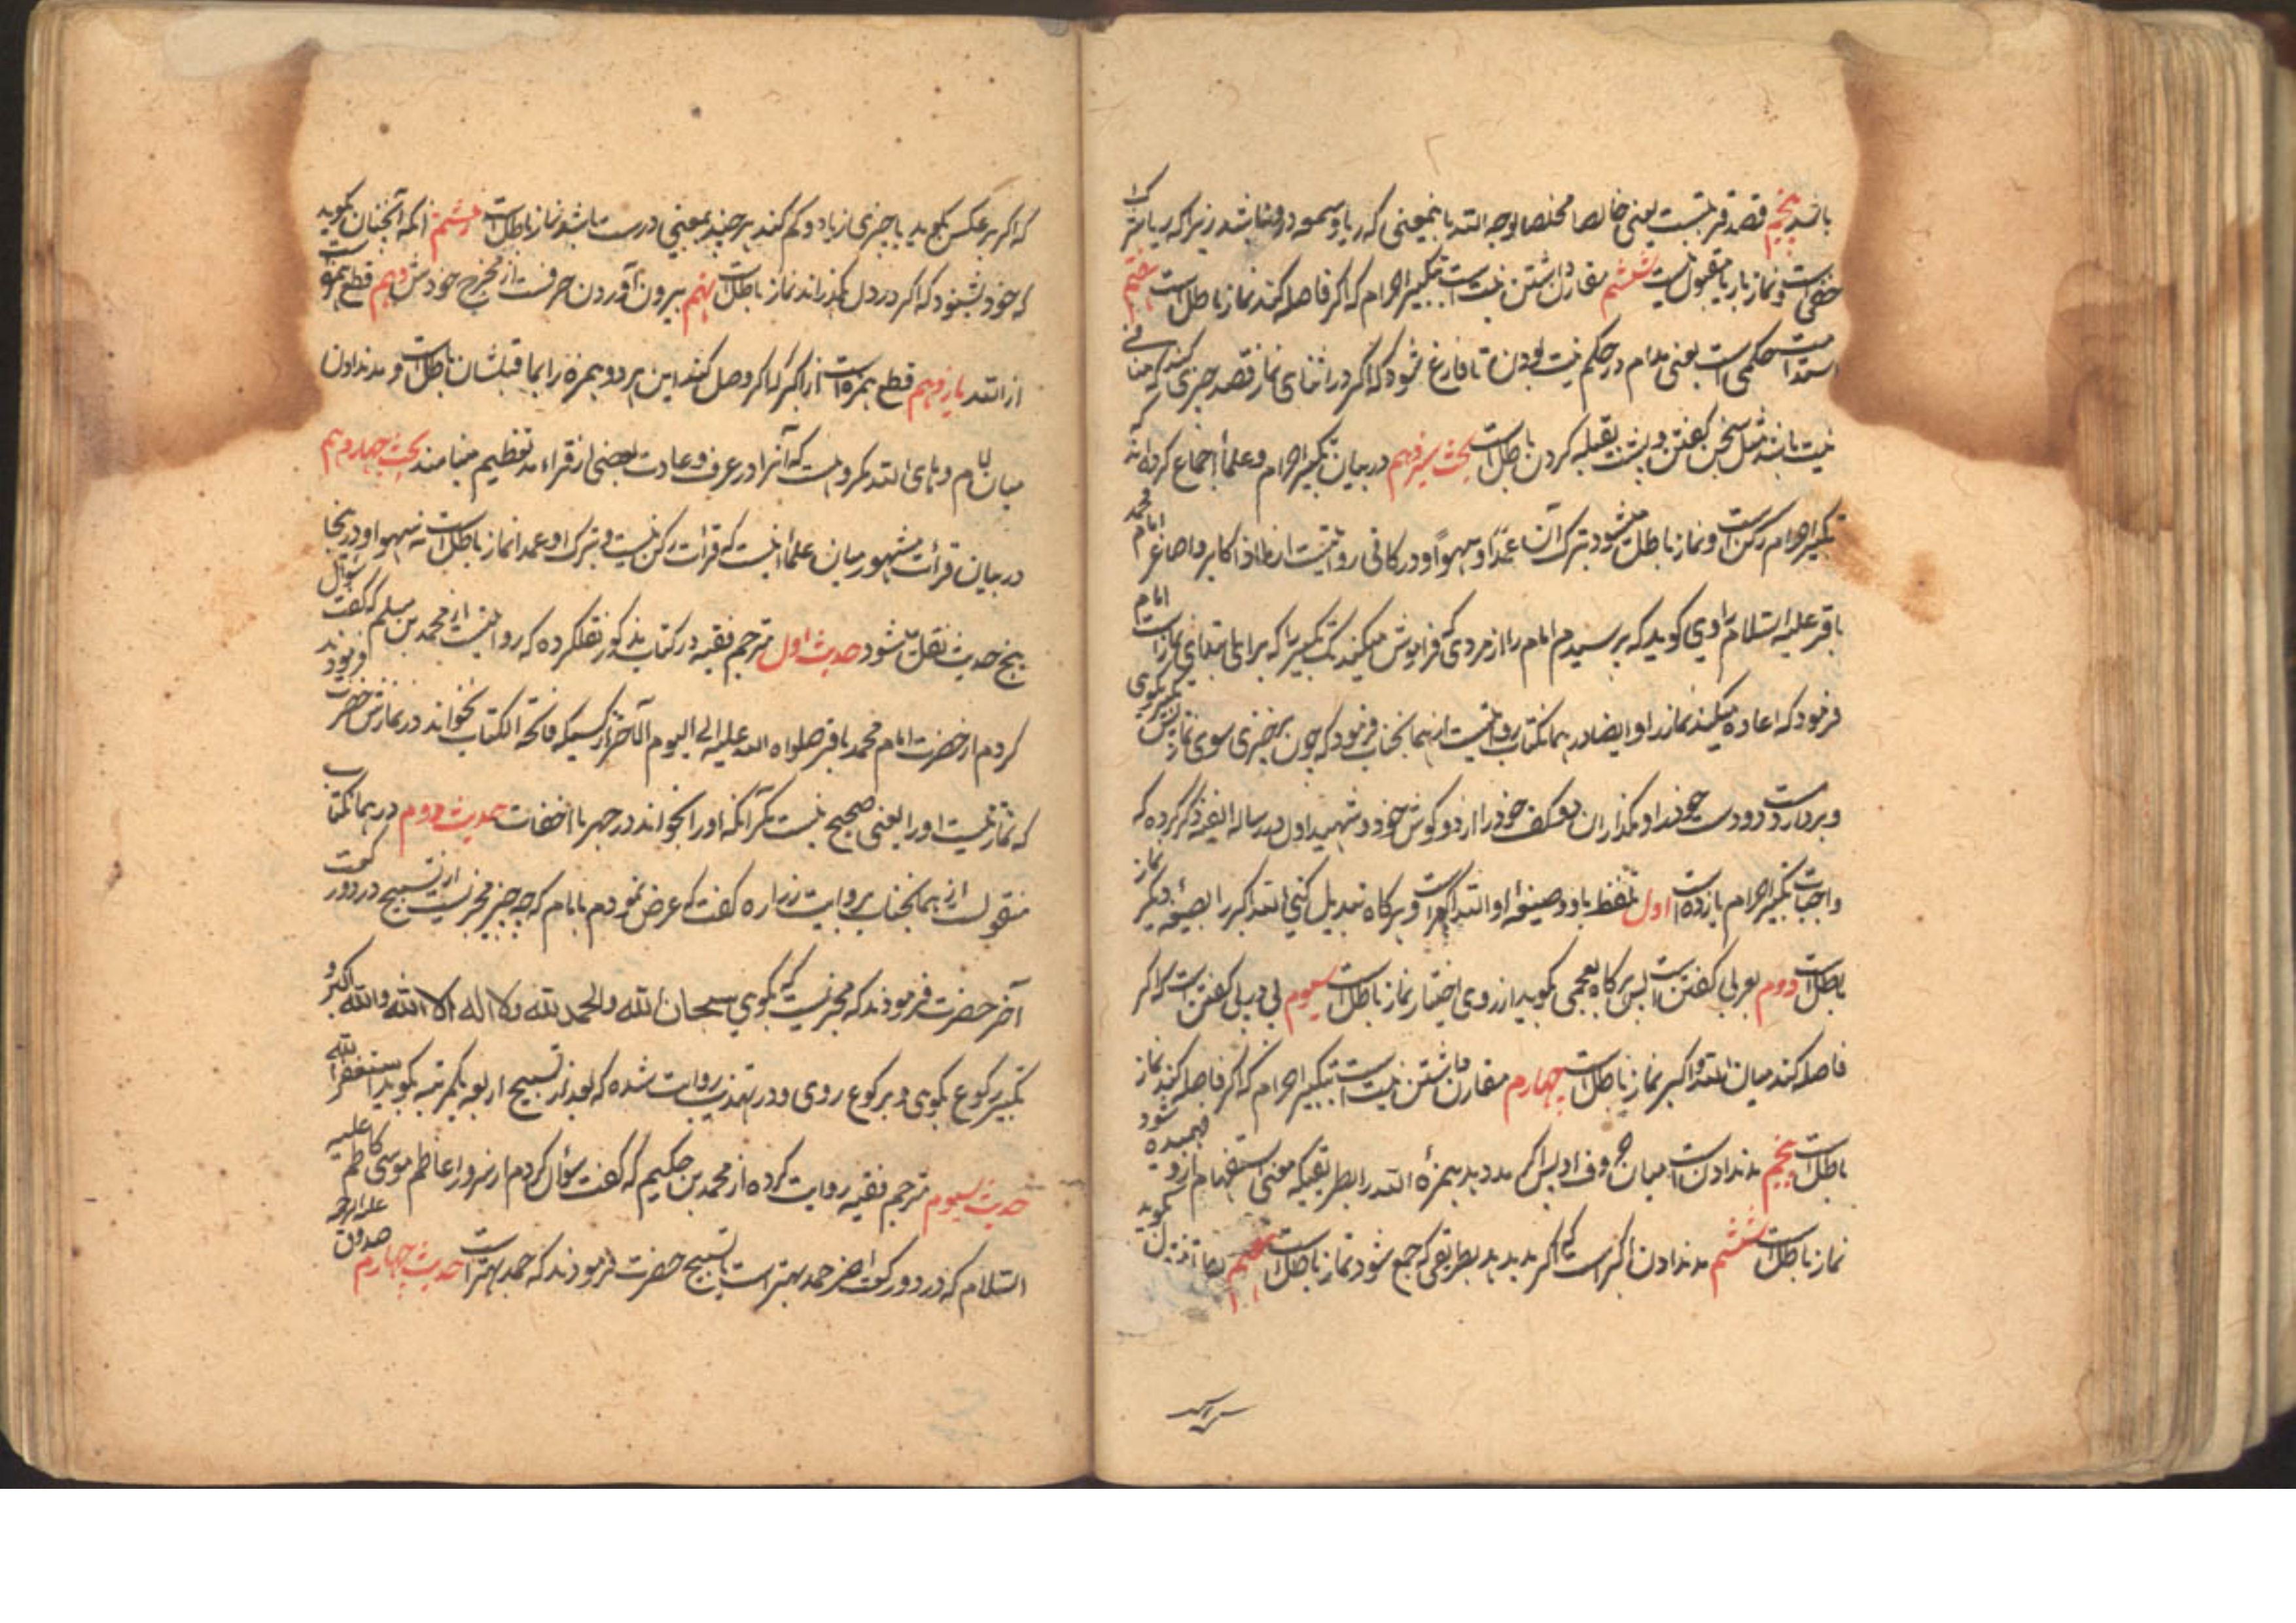 باشد پنجم قصد قربتست یعنی خالصا مخلصا لوجه الله باینمعنی که ریا و سمعه در او نباشد زیرا که ریا شرک
خفی است و نماز با ریا مقبول نیست ششم مقارن داشتن نیت است بتکبیر احرام که اگر فاصله کند نماز باطل است هفتم
استدامت حکمی است یعنی مدام در حکم نیت بودن تا فارغ شود که اگر در اثنای نماز قصد چیزی کند که منافی
نیت باشد مثل سخن گفتن و پشت بقبله کردن باطل است بحث سیزدهم در بیان تکبیر احرام و علما اجماع کرده اند که
تکبیر احرام رکن است و نماز باطل میشود بترک آن عمدًا و سهوًا و در کافی روایتست از اکابر و اصاغر امام محمد
باقر علیه السلام راوی گوید که پرسیدم امام را از مردی که فراموش میکند تکبیر را که برای ابتدای نماز است امام
فرمود که اعاده میکند نماز را و ایضا در همانکتاب روایتست از همانجناب فرمود که چون برخیزی سوی نماز پس تکبیر بگوی
و بردار دو دست خود را و مگذران دو کف خود را از دو گوش خود و شهید اول در رساله الفیه ذکر کرده که
واجبات تکبیر احرام یازده است اول تلفظ باو و صیغه او الله اکبر است و هرگاه تبدیل کنی الله اکبر را بصیغه دیگر نماز
باطل است دوم بعربی گفتن است پس هرگاه بعجمی بگوید از روی اختیار نماز باطل است سیوم پی در پی گفتن است که اگر
فاصله کند میان الله و اکبر نماز باطل است چهارم مقارن داشتن نیت است بتکبیر احرام که اگر فاصله کند نماز
باطل است پنجم مد ندادن است میان حروف او پس اگر مد دهد همزهٔ الله را بطریقیکه معنی استفهام ازو فهمیده شود
نماز باطل است ششم مد ندادن اکبر است که اگر مد بدهد بطریقی که جمع شود نماز باطل است هفتم بگوید
که اگر برعکس بگوید یا چیزی زیاد و کم کند هر چند بمعنی درست باشد نماز باطل است هشتم آنکه آنچنان بگوید
که خود بشنود که اگر در دل بگذراند نماز باطل است نهم بیرون آوردن حرفست از مخرج خودش دهم قطع همزه است
از الله یازدهم قطع همزه است از اکبر که اگر وصل کند این هر دو همزه را بما قبلشان باطل است و مد ندادن
میان لام و های الله مکروهست که آنرا در عرف و عادت بعضی از قراء مد تعظیم مینامند بحث چهاردهم
در بیان قرأت مشهور میان علما آنست که قرأت رکن نیست و بترک او عمدا نماز باطل است نه سهوا و در اینجا
پنج حدیث نقل میشود حدیث اول مترجم فقیه در کتاب مذکور نقلکرده که روایتست از محمد بن مسلم که گفت سؤال
کردم از حضرت امام محمد باقر صلواه الله علیه الی الیوم الآخر از کسیکه فاتحة الکتاب نخواند در نمازش حضرت فرمودند
که نماز نیست او را یعنی صحیح نیست مگر آنکه او را بخواند در جهر یا اخفات حدیث دوم در همانکتاب
منقولست از همانجناب بروایت زراره گفت که عرض نمودم بامام که چه چیز مجزیست از تسبیح در دو رکعت
آخر حضرت فرمودند که مجزیست که بگوی سبحان الله والحمد لله ولا اله الا الله والله اکبر و
تکبیر رکوع بگوی و برکوع روی و در تهذیب روایت شده که بعد از تسبیح اربعه یکمرتبه بگوید استغفر الله
حدیث سیوم مترجم فقیه روایت کرده از محمد بن حکیم که گفت سؤال کردم از سرور اعاظم موسی کاظم علیه
السلام که در دو رکعت اخیر حمد بهتر است یا تسبیح حضرت فرمودند که حمد بهتر است حدیث چهارم صدوق علیه الرحمه